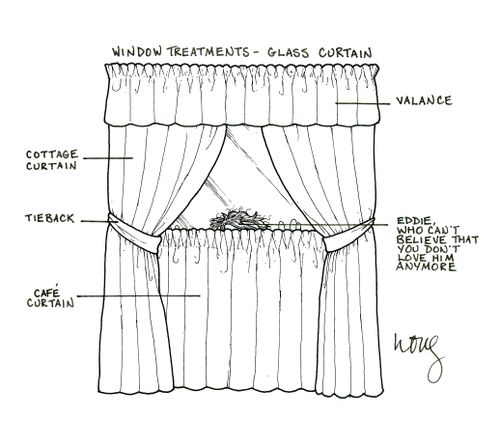 WINDOW TREATMENTS - GLASS CURTAIN
VALANCE
COTTAGE
CURTAIN
TIEBACK
EDDIE,
WHO CAN'T
BELIEVE THAT
YOU DON'T
LOVE HIM
ANYMORE
CAFÉ
CURTAIN